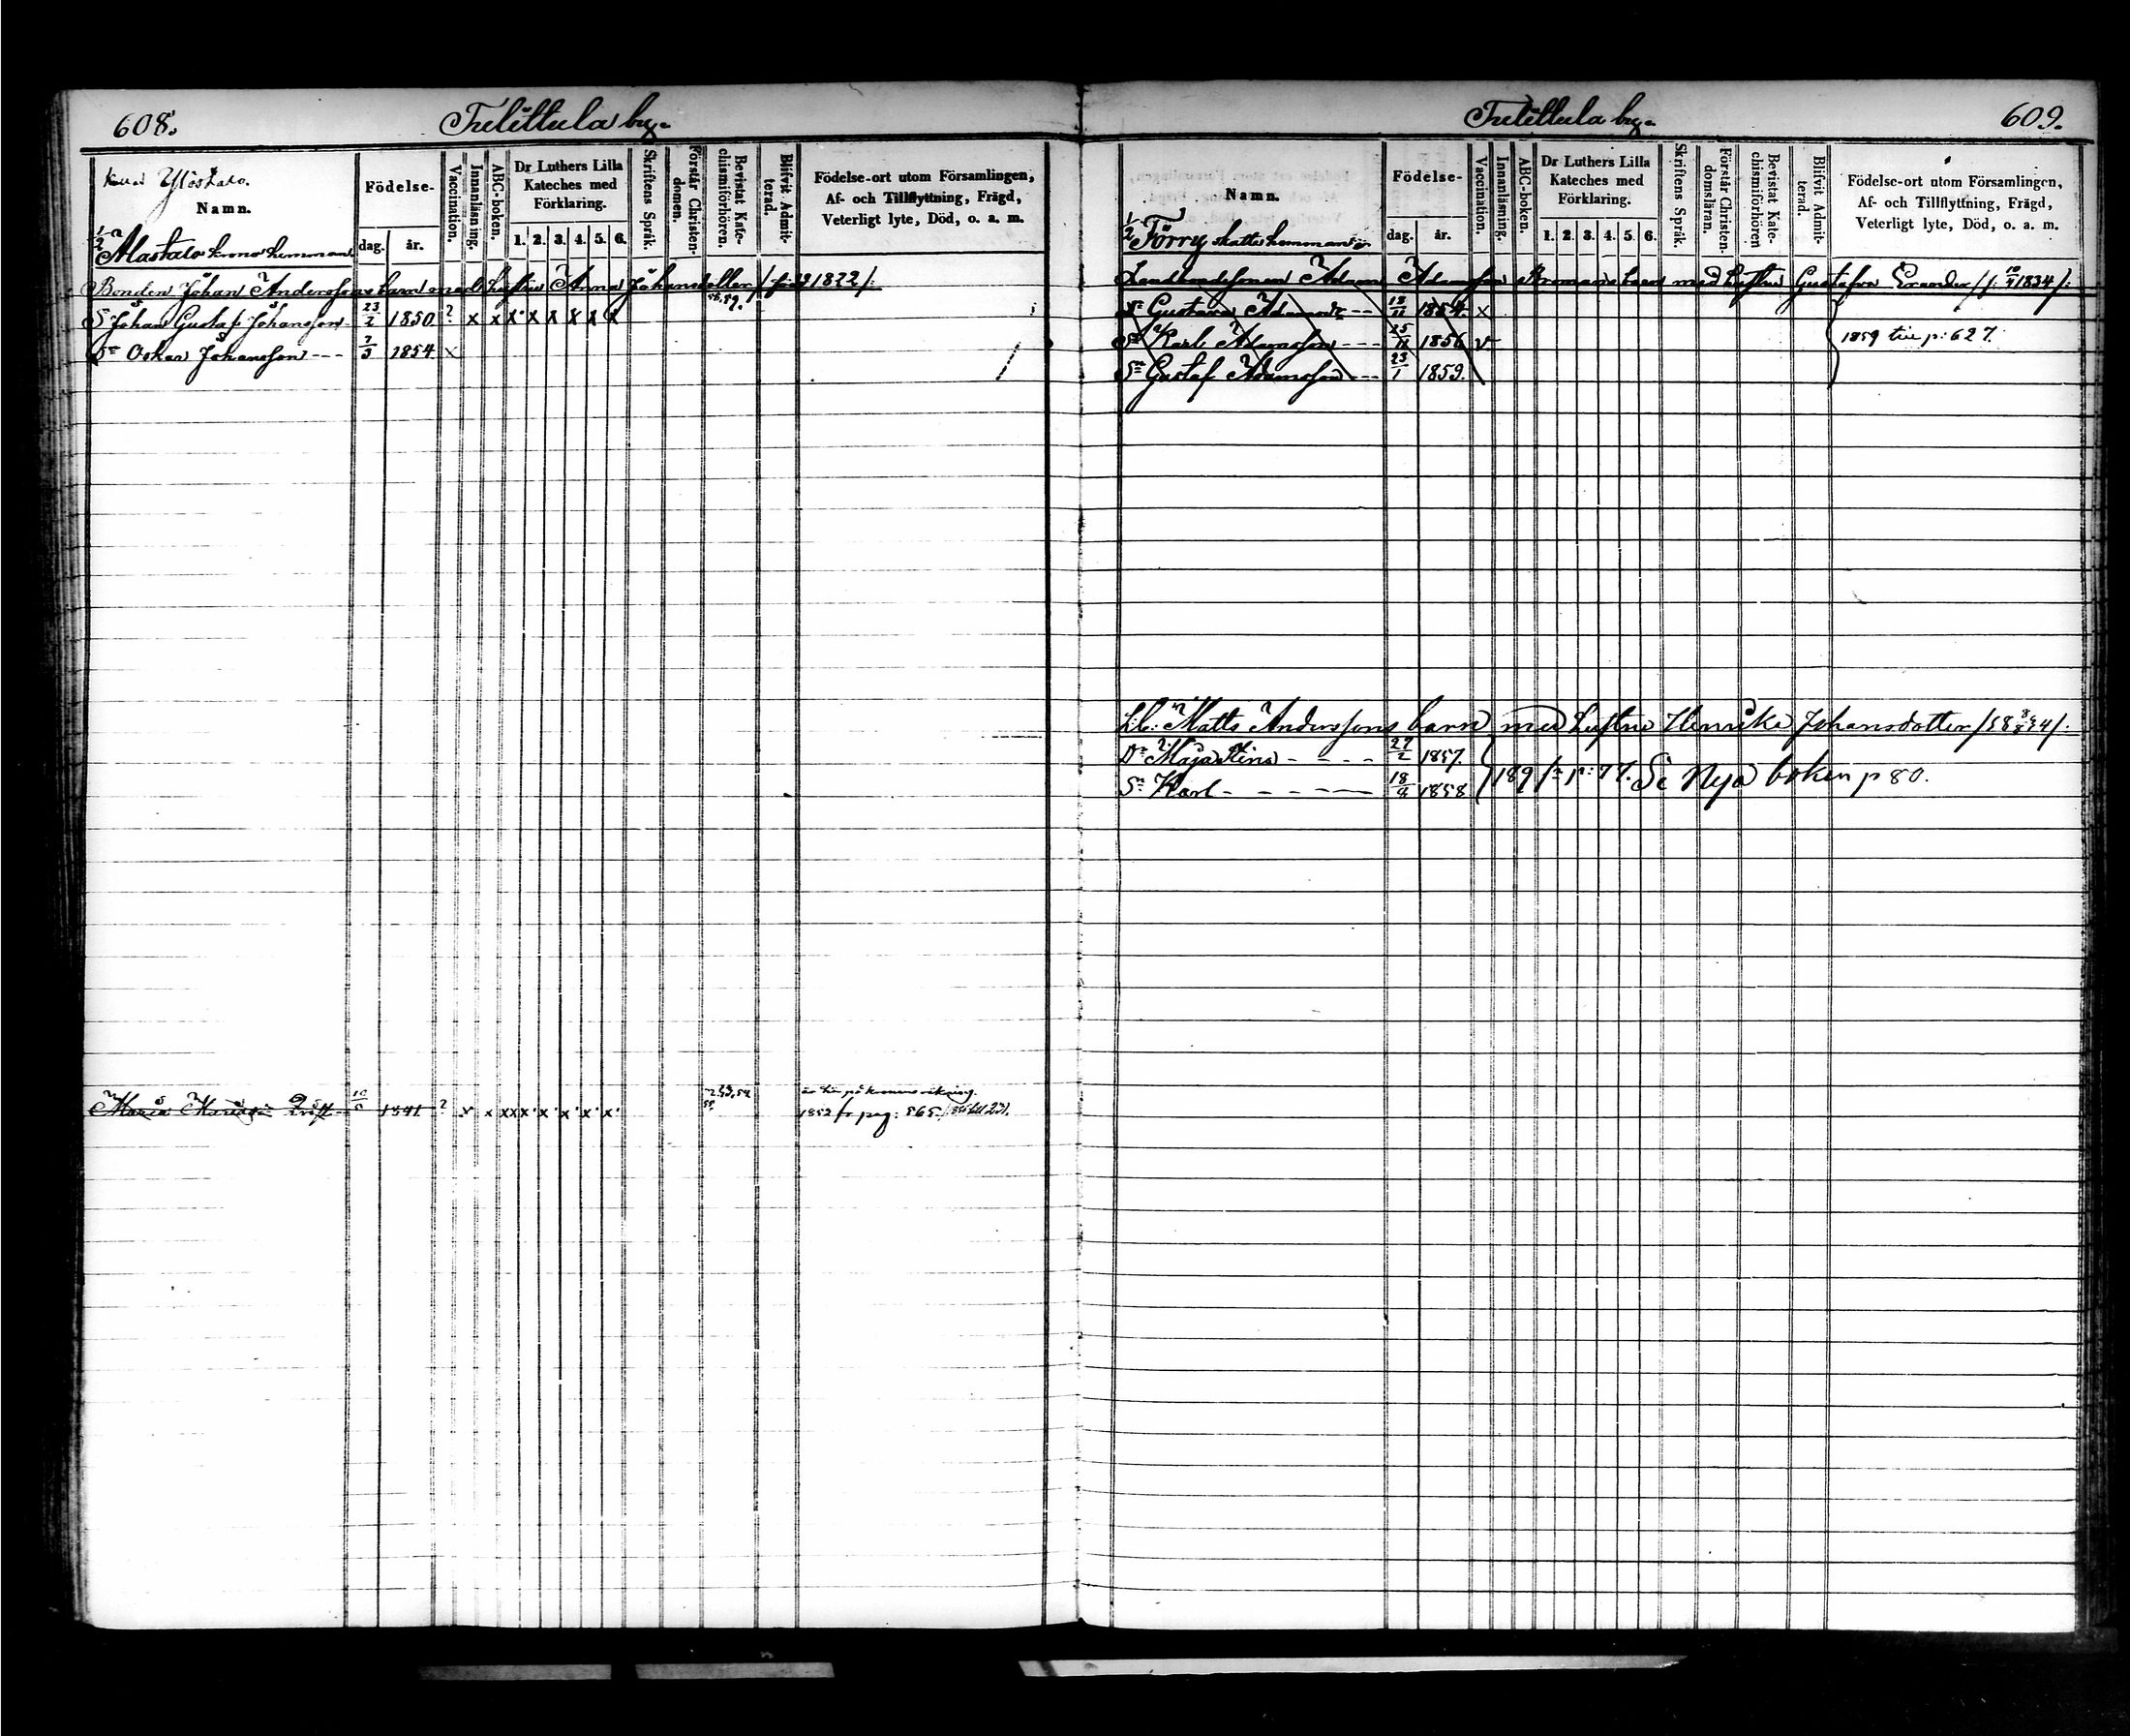 608.
Tulittula by.
Ylöstalo.
Namn.
Födelse-
dag.
år.
Vaccination.
Innanläsning.
ABC-boken.
Dr Luthers Lilla
Kateches med
Förklaring.
1. 2. 3. 4. 5. 6.
Skriftens Språk.
Förstår Christen-
domen.
Bevistat Kate-
chismiförhören.
Blifvit Admit-
terad.
Födelse-ort utom Församlingen,
Af- och Tillflyttning, Frägd,
Veterligt lyte, Död, o. a. m.
1/2 Alastalo krono hemman
Bonden Johan Anderssons barn med hustru Anna Johansdotter /: född 1822 /:
Sn Johan Gustaf Johansson 23/2 1850 ? x x x x x x x x
Sn Oskar Johansson --- 7/5 1854 x
Maria 1841 ? x x x x x x x x x
1852 fr pag: 565.
609.
Tulittula by.
Namn.
Födelse-
dag.
år.
Vaccination.
Innanläsning.
ABC-boken.
Dr Luthers Lilla
Kateches med
Förklaring.
1. 2. 3. 4. 5. 6.
Skriftens Språk.
Förstår Christen-
domsläran.
Bevistat Kate-
chismiförhören
Blifvit Admit-
terad.
Födelse-ort utom Församlingen,
Af- och Tillflyttning, Frägd,
Veterligt lyte, Död, o. a. m.
1/2 Förry skatte hemman
Adam Adamsson barn med hustru Gustafva 1834 /:
Dr Gustava Adamsdr -- 18/11 1854. x
Sn Karl Adamsson --- 25/11 1856 v
1859 till p: 627.
Sn Gustaf Adamsson --- 23/1 1859.
Matts Anderssons barn med hustru Henrika Johansdotter
Dr Maja Stina - - - - 27/2 1857.
Sn Karl - - - - - 18/8 1858
Se Nya boken p 80.